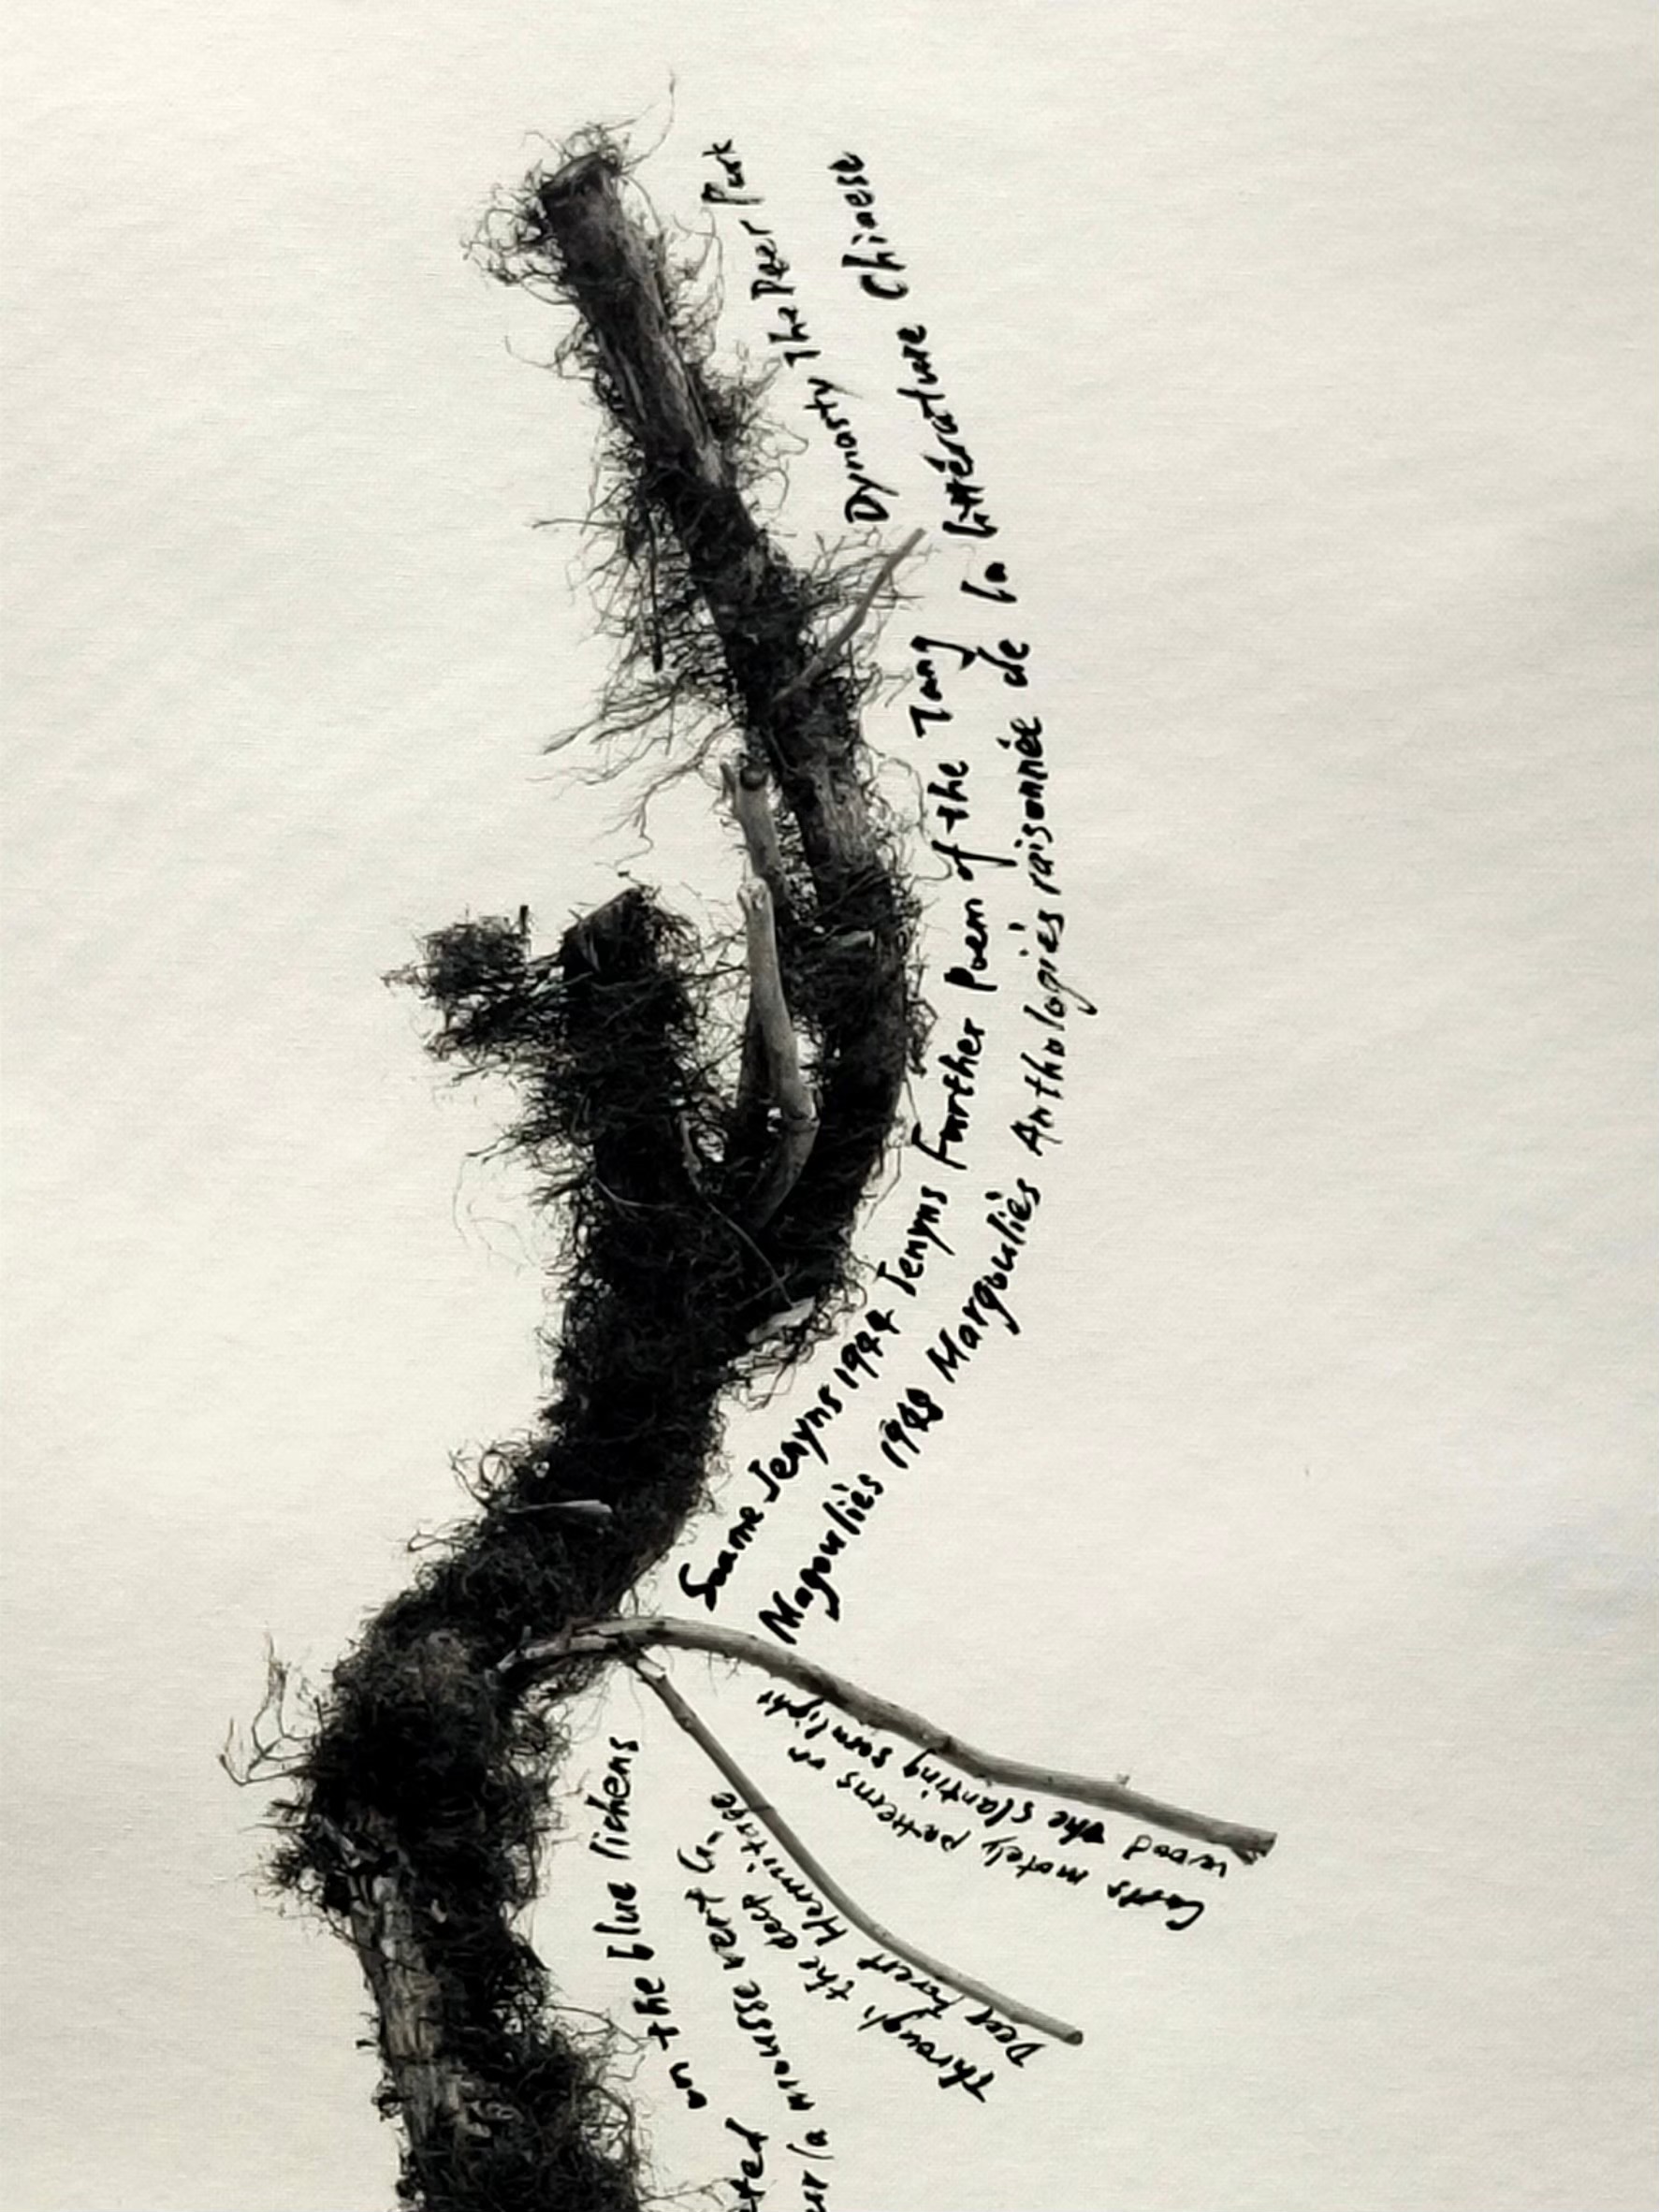 Soame Jenyns 1944 Jenyns Further Poem of the Tang Dynasty The Deer Park
Magouliès 1948 Margouliès Anthologies raisonnée de la littérature Chinese
Casts motely patterns on
wood the slanting sunlight
Through the deep
Deep forest Hermitage
on the blue lichens
la mousse vert